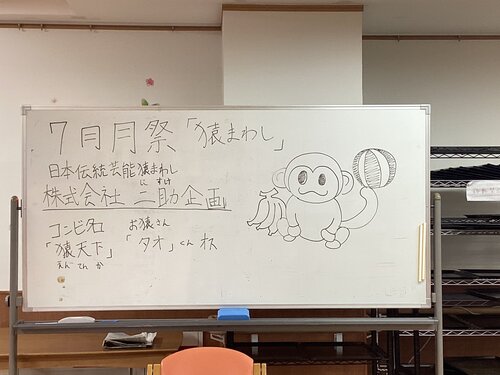 7月月祭「猿まわし」
日本伝統芸能猿まわし
に すけ
株式会社 二助企画
コンビ名 お猿さん
「猿天下」 「タオ」くん オス
えんてんか